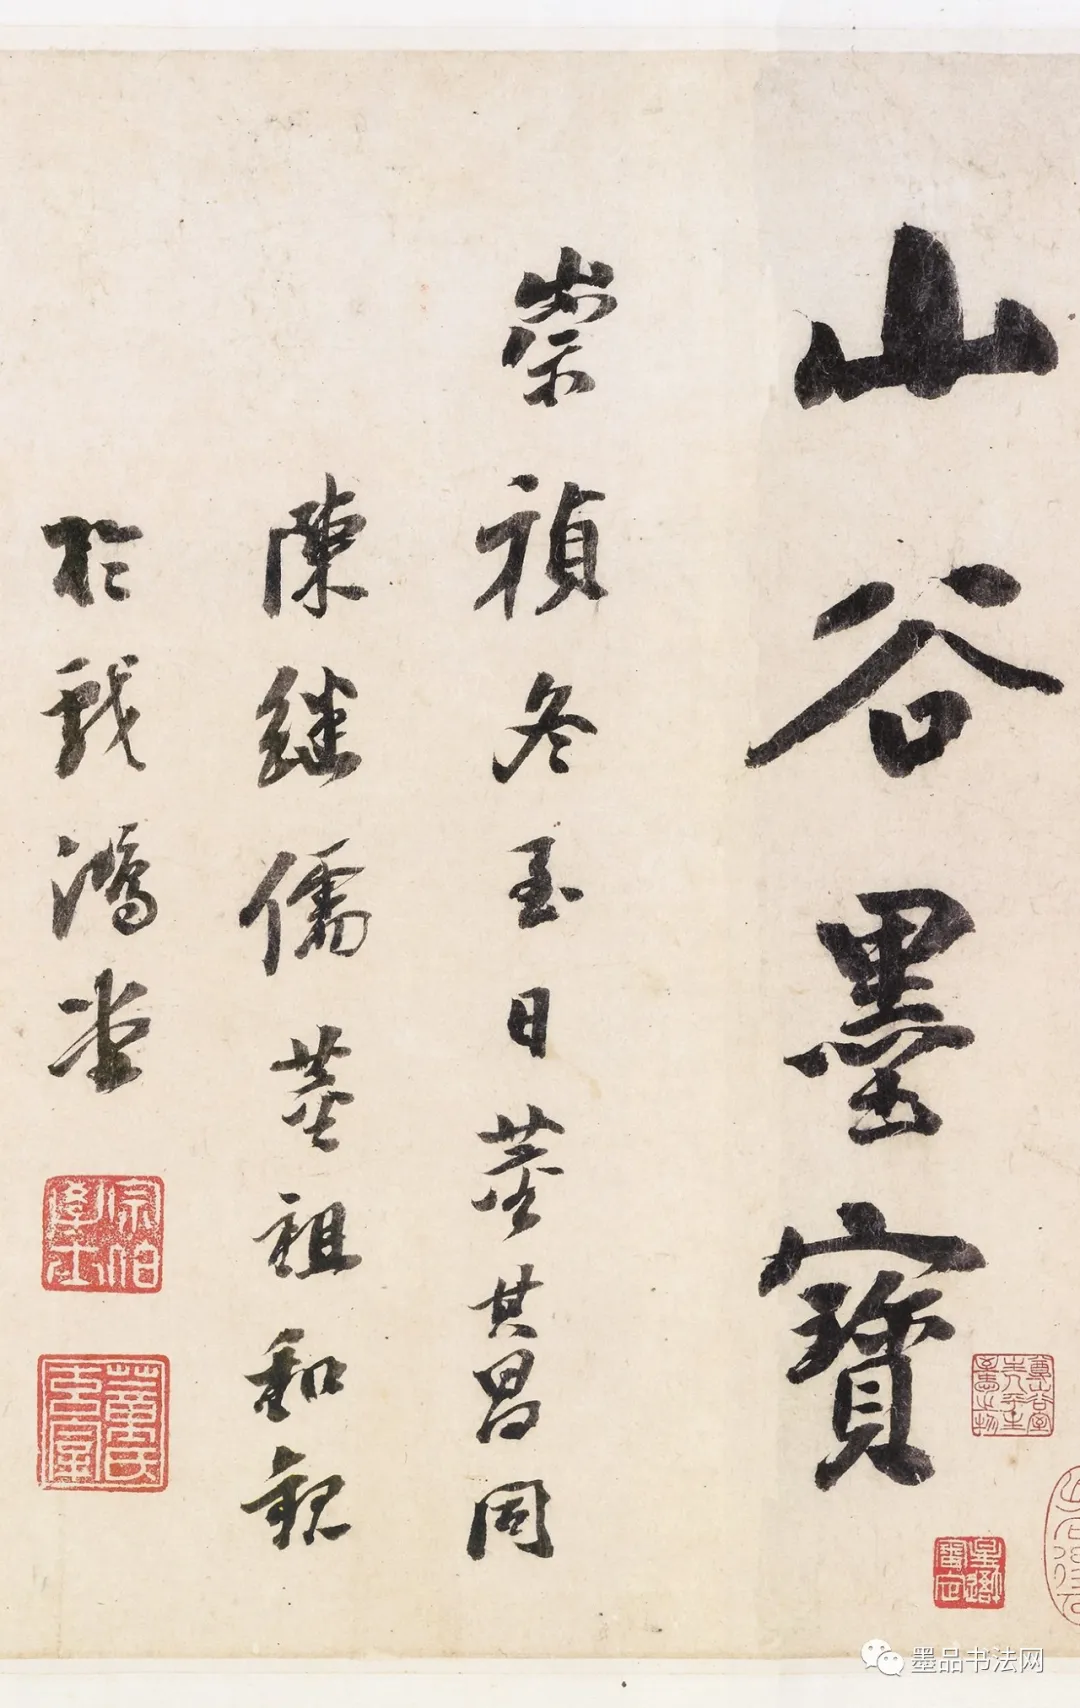 山谷墨寶
崇禎冬至日董其昌同
陳継儒董祖和觀
於戲鴻堂
宗伯學士
墨品书法网